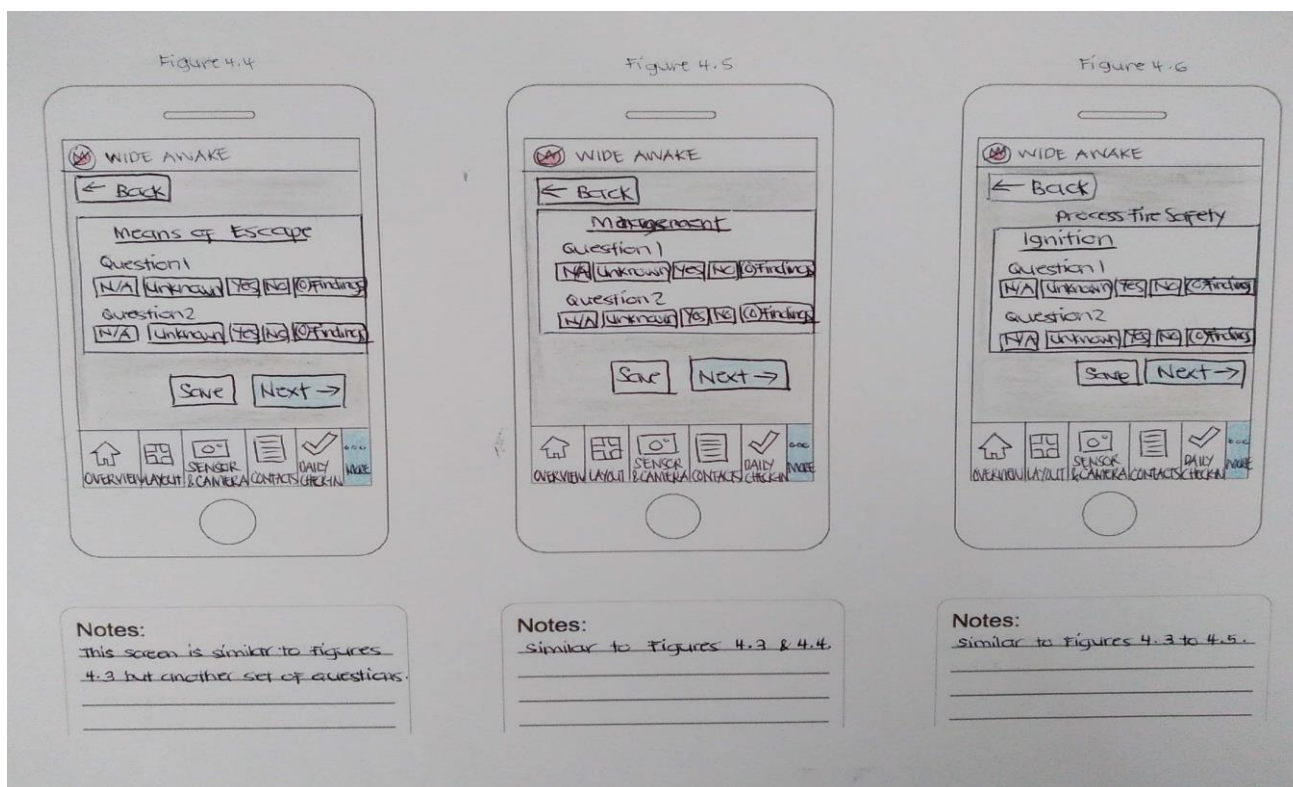 Figure 4.4
WIDE AWAKE
← Back
Means of Escape
Question 1
N/A Unknown Yes No (0) Findings
Question 2
N/A Unknown Yes No (0) Findings
Save Next →
OVERVIEW LAYOUT SENSOR & CAMERA CONTACTS DAILY CHECK-IN MORE
Notes:
This screen is similar to Figures
4.3 but another set of questions.
Figure 4.5
WIDE AWAKE
← Back
Management
Question 1
N/A Unknown Yes No (0) Findings
Question 2
N/A Unknown Yes No (0) Findings
Save Next →
OVERVIEW LAYOUT SENSOR & CAMERA CONTACTS DAILY CHECK-IN MORE
Notes:
Similar to Figures 4.3 & 4.4.
Figure 4.6
WIDE AWAKE
← Back
Process Fire Safety
Ignition
Question 1
N/A Unknown Yes No (0) Findings
Question 2
N/A Unknown Yes No (0) Findings
Save Next →
OVERVIEW LAYOUT SENSOR & CAMERA CONTACTS DAILY CHECK-IN MORE
Notes:
Similar to Figures 4.3 to 4.5.